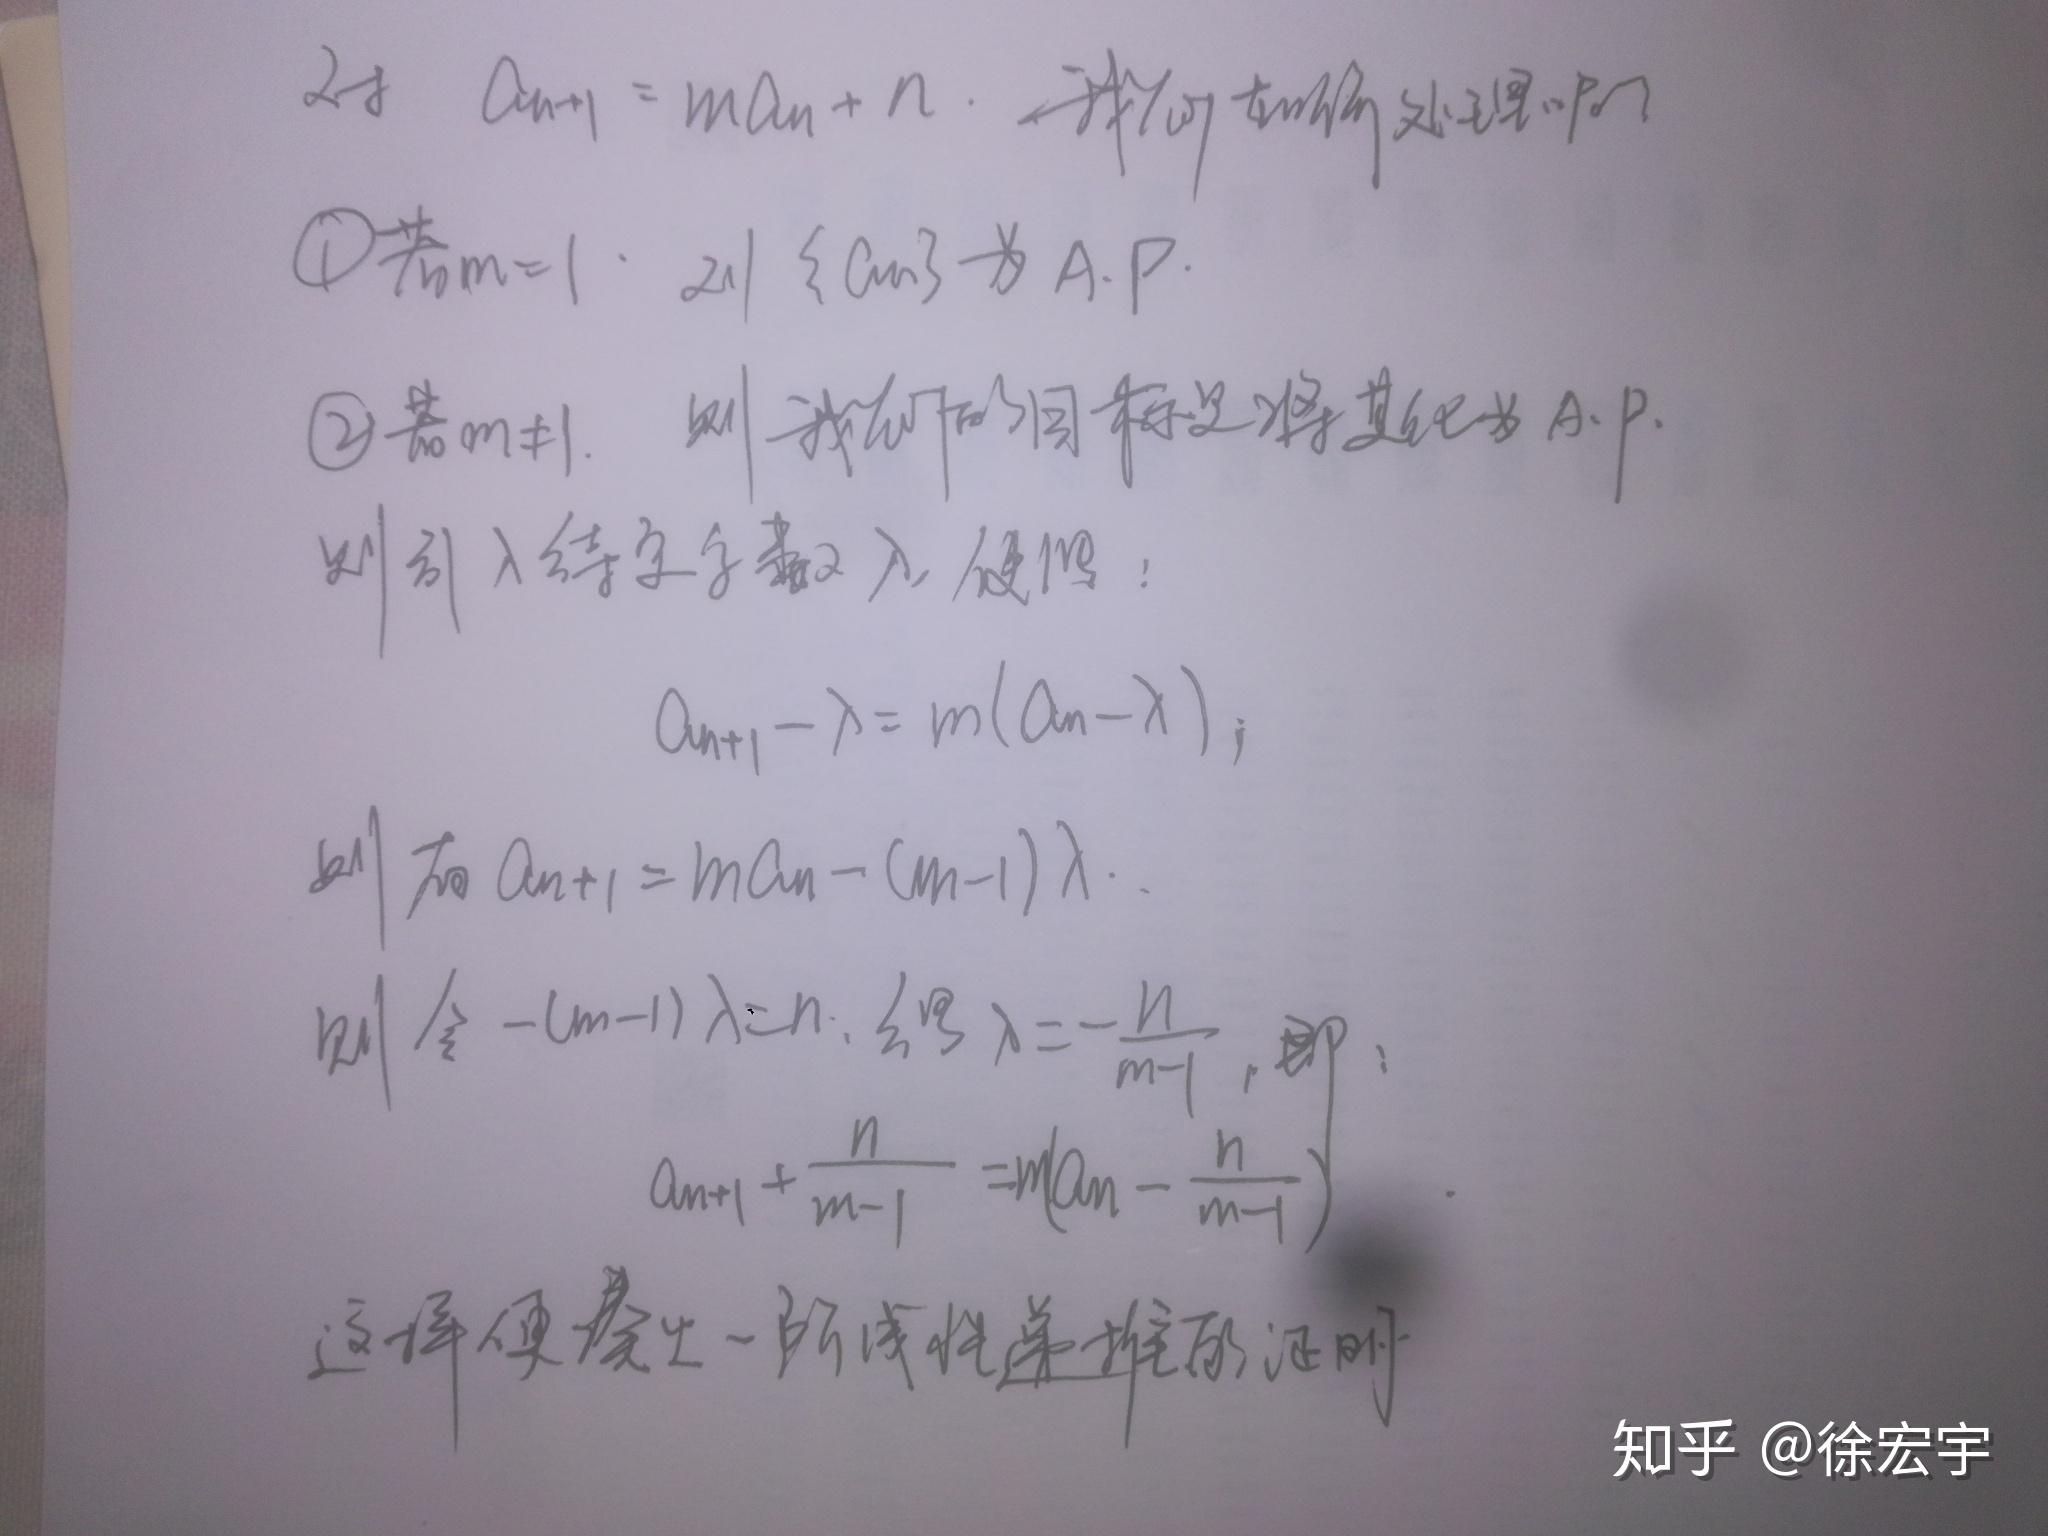 对 aₙ₊₁ = maₙ + n. 我们如何处理呢?
① 若m=1. 则 {aₙ} 为 A.P.
② 若m≠1. 则我们的目标是将其化为 A.P.
则引入待定字数λ,使得:
aₙ₊₁ - λ = m(aₙ - λ);
则有 aₙ₊₁ = maₙ - (m-1)λ.
则令 -(m-1)λ=n. 得 λ = -n/(m-1), 即:
aₙ₊₁ + n/(m-1) = m(aₙ - n/(m-1))
这样便 出一阶线性递推的证明
知乎 @徐宏宇